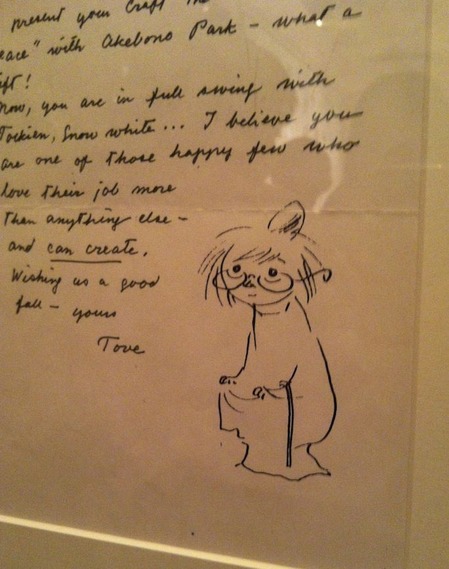 present your Craft
eace" with Akebono Park – what a
ift!
now, you are in full swing with
Tolkien, Snow white... I believe you
are one of those happy few who
love their job more
than anything else –
and can create.
Wishing us a good
fall – yours
Tove